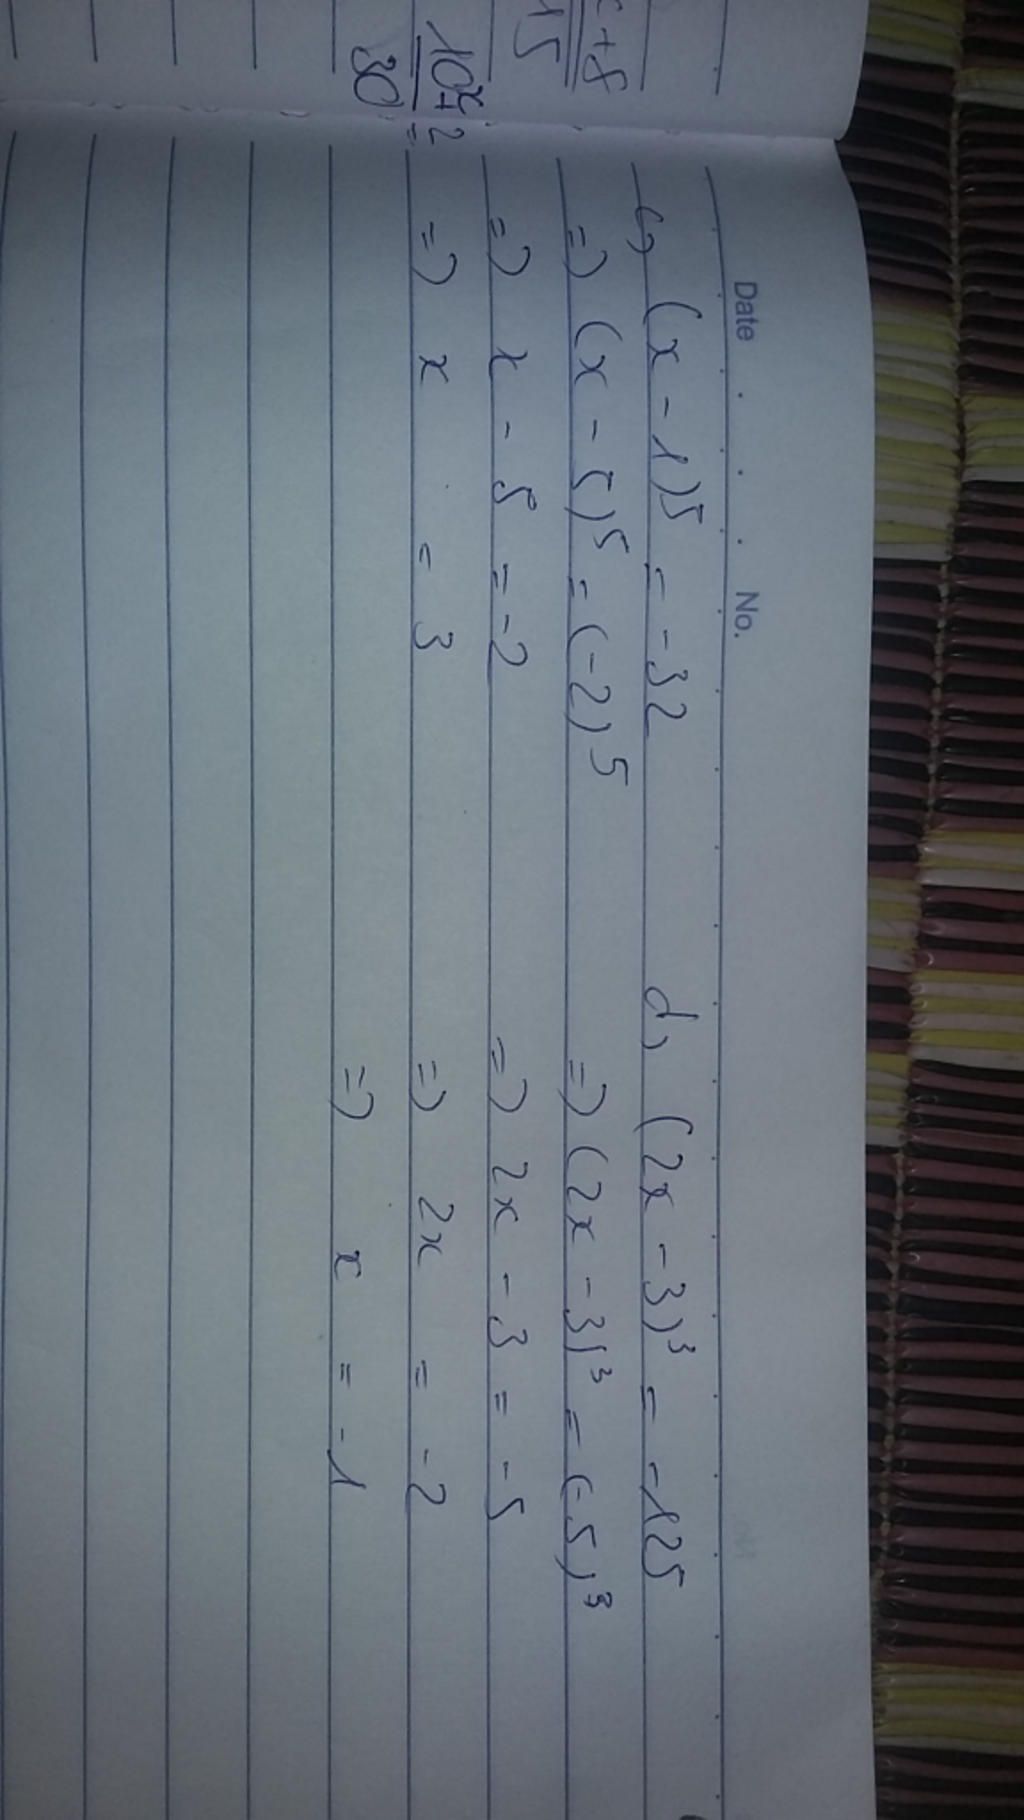 x+8
15
10x+2 =
30
Date No.
c, (x - 1)⁵ = -32
=> (x - 5)⁵ = (-2)⁵
=> x - 5 = -2
=> x = 3
d, (2x - 3)³ = -125
=> (2x - 3)³ = (-5)³
=> 2x - 3 = -5
=> 2x = -2
=> x = -1